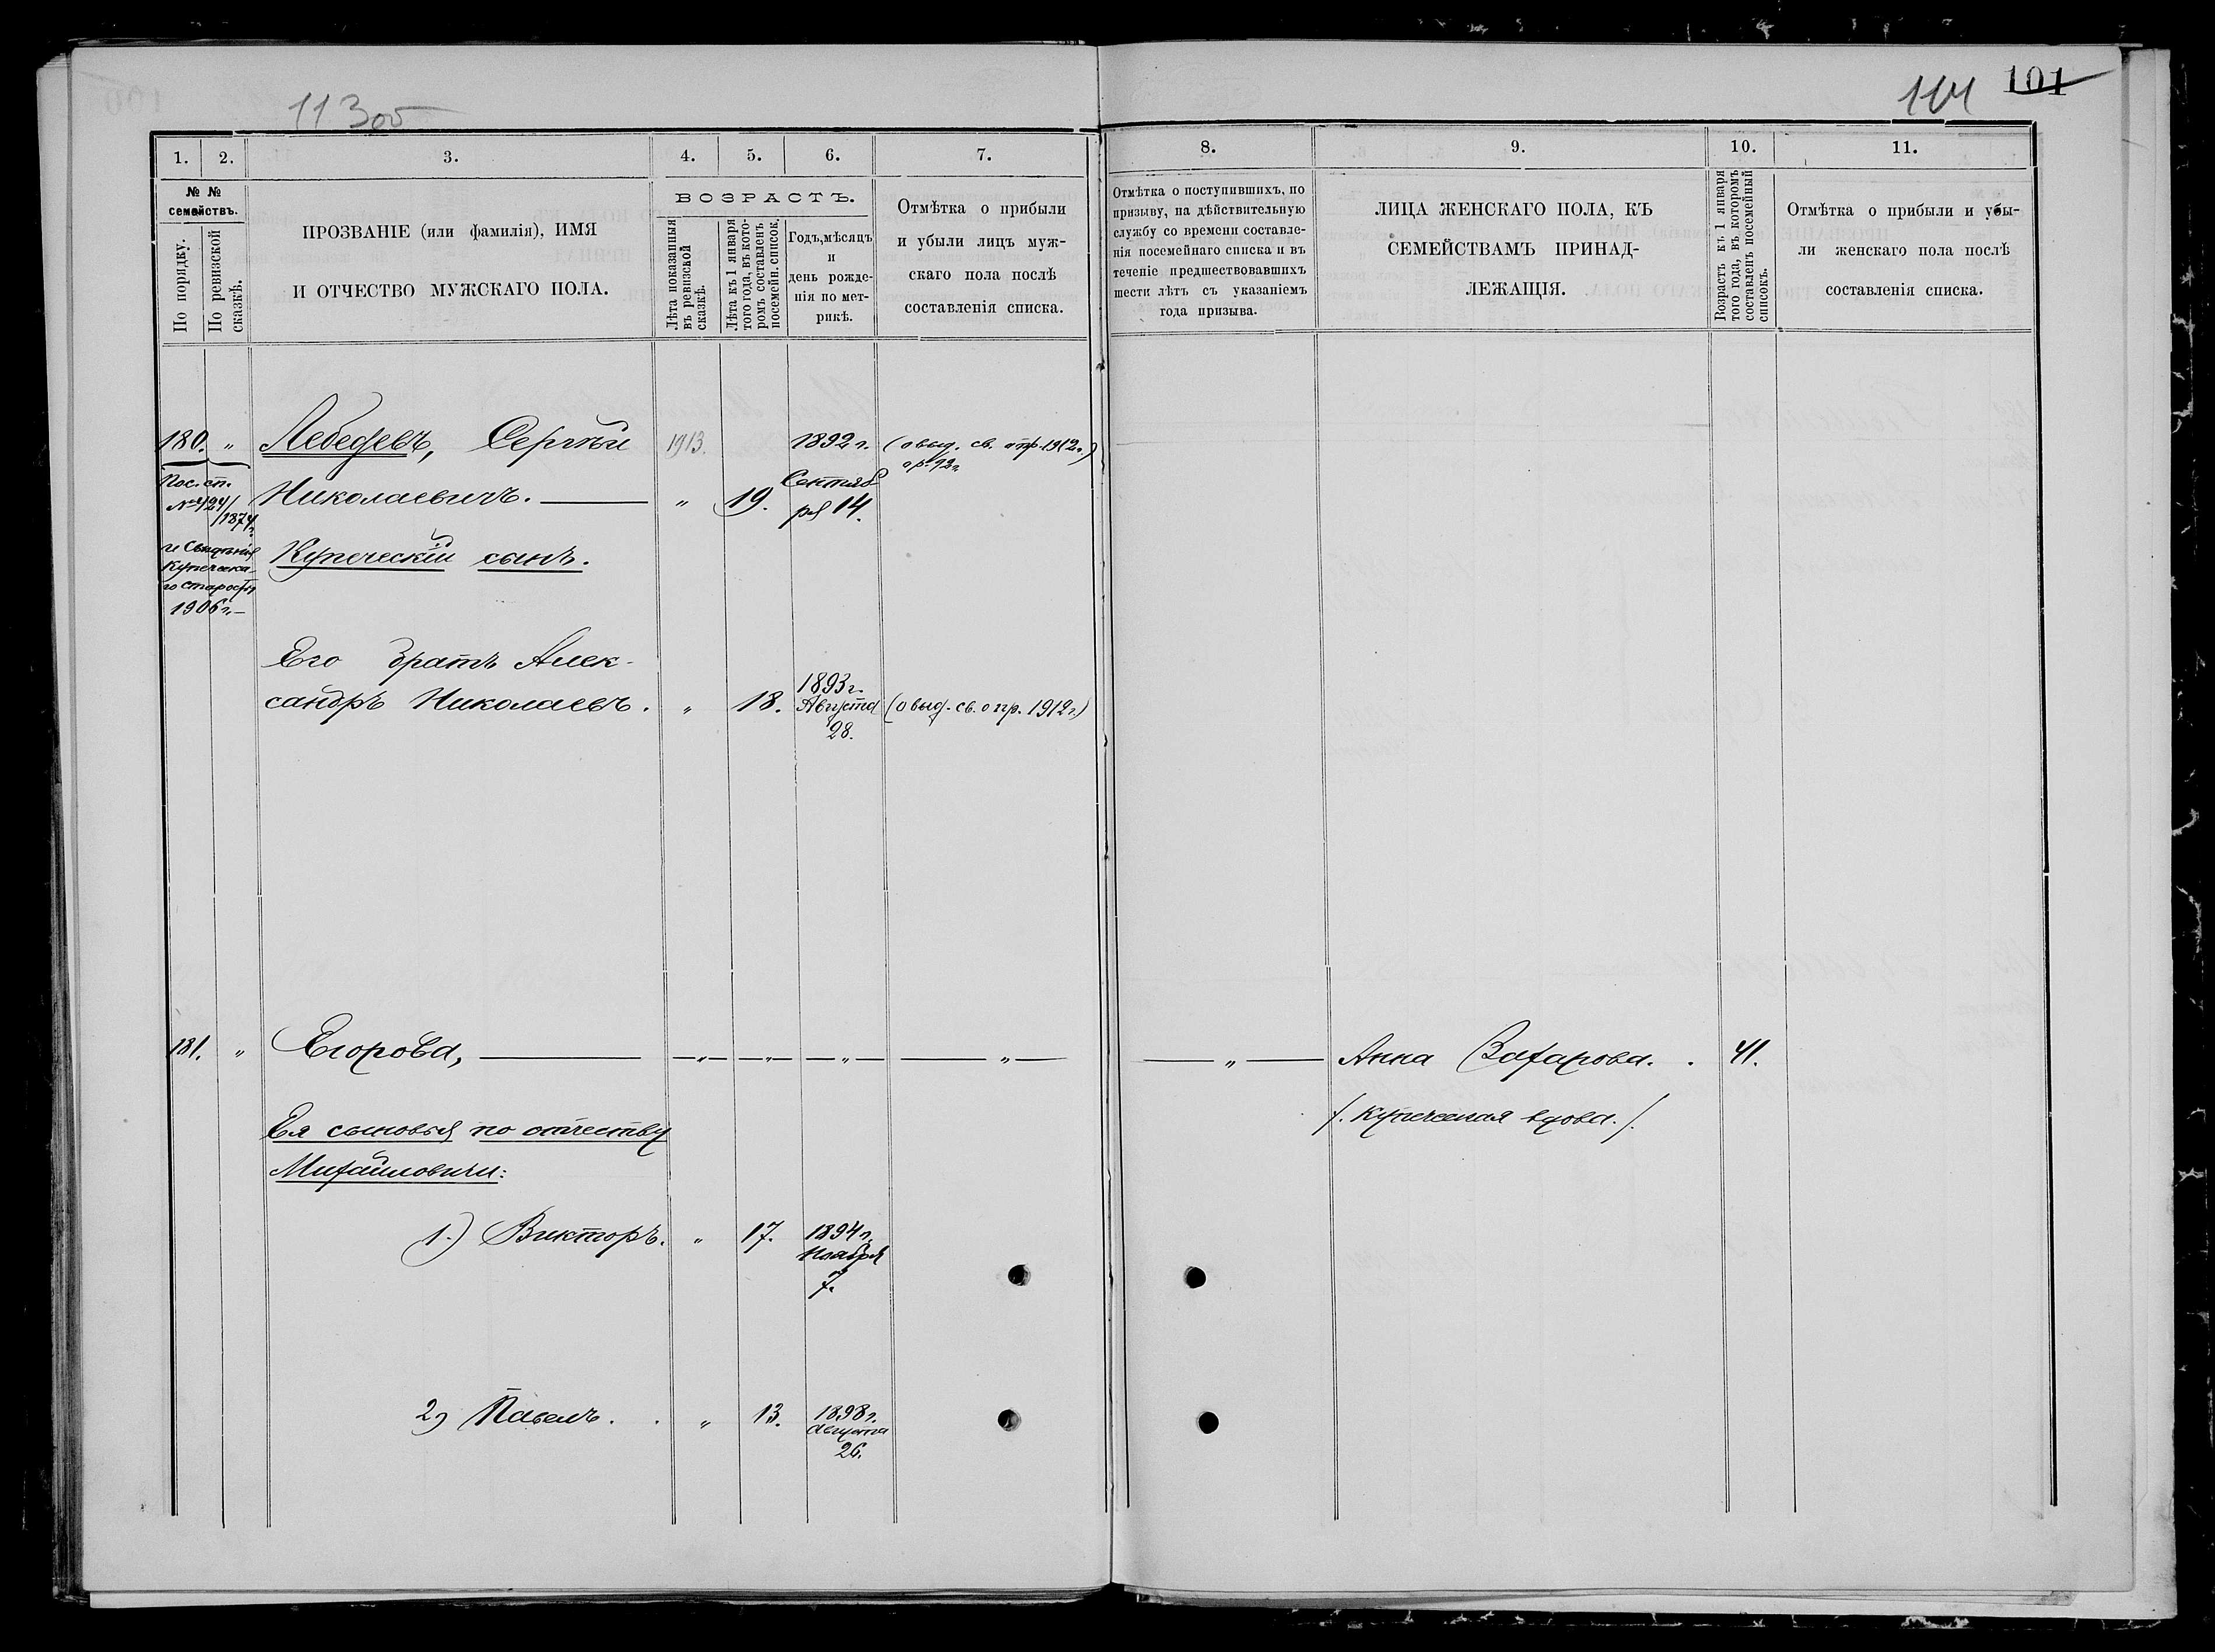 11 300
101
101
1. 2. 3. 4. 5. 6. 7.
№ №
семействъ.
По порядку.
По ревизской
сказкѣ.
ПРОЗВАНІЕ (или фамилія), ИМЯ
И ОТЧЕСТВО МУЖСКАГО ПОЛА.
ВОЗРАСТЪ.
Лѣта показанныя
въ ревизской
сказкѣ.
Лѣта къ 1 января
того года, въ кото-
ромъ составленъ
посемейн. список.
Годъ, мѣсяцъ
и
день рожде-
нія по мет-
рикѣ.
Отмѣтка о прибыли
и убыли лицъ муж-
скаго пола послѣ
составленія списка.
180. „ Лебедевъ, Сергѣй 1913. 1892 г. (о выд. св. о пр. 1912 г.)
Пос. сп.
№ 424/
/1874
Николаевичъ. „ 19. Сентяб-
ря 14.
и Свидѣнія
Купечека-
го старосты
1906 г.
Купеческій сынъ.
Его братъ Алек-
сандръ Николаевъ. „ 18. 1893 г.
Августа
28.
(о выд. св. о пр. 1912 г.)
181. „ Егорова, „ „ „ „
Ея сыновья по отчеству
Михайловичи:
1.) Викторъ. „ 17. 1894 г.
Ноября
7.
2) Павелъ. „ 13. 1898 г.
августа
26.
8. 9. 10. 11.
Отмѣтка о поступившихъ, по
призыву, на дѣйствительную
службу со времени составле-
нія посемейнаго списка и въ
теченіе предшествовавшихъ
шести лѣтъ съ указаніемъ
года призыва.
ЛИЦА ЖЕНСКАГО ПОЛА, КЪ
СЕМЕЙСТВАМЪ ПРИНАД-
ЛЕЖАЩІЯ.
Возрастъ къ 1 января
того года, въ которомъ
составленъ посемейный
списокъ.
Отмѣтка о прибыли и убы-
ли женскаго пола послѣ
составленія списка.
„ Анна Захарова. 41.
/. Купеческая вдова. /.